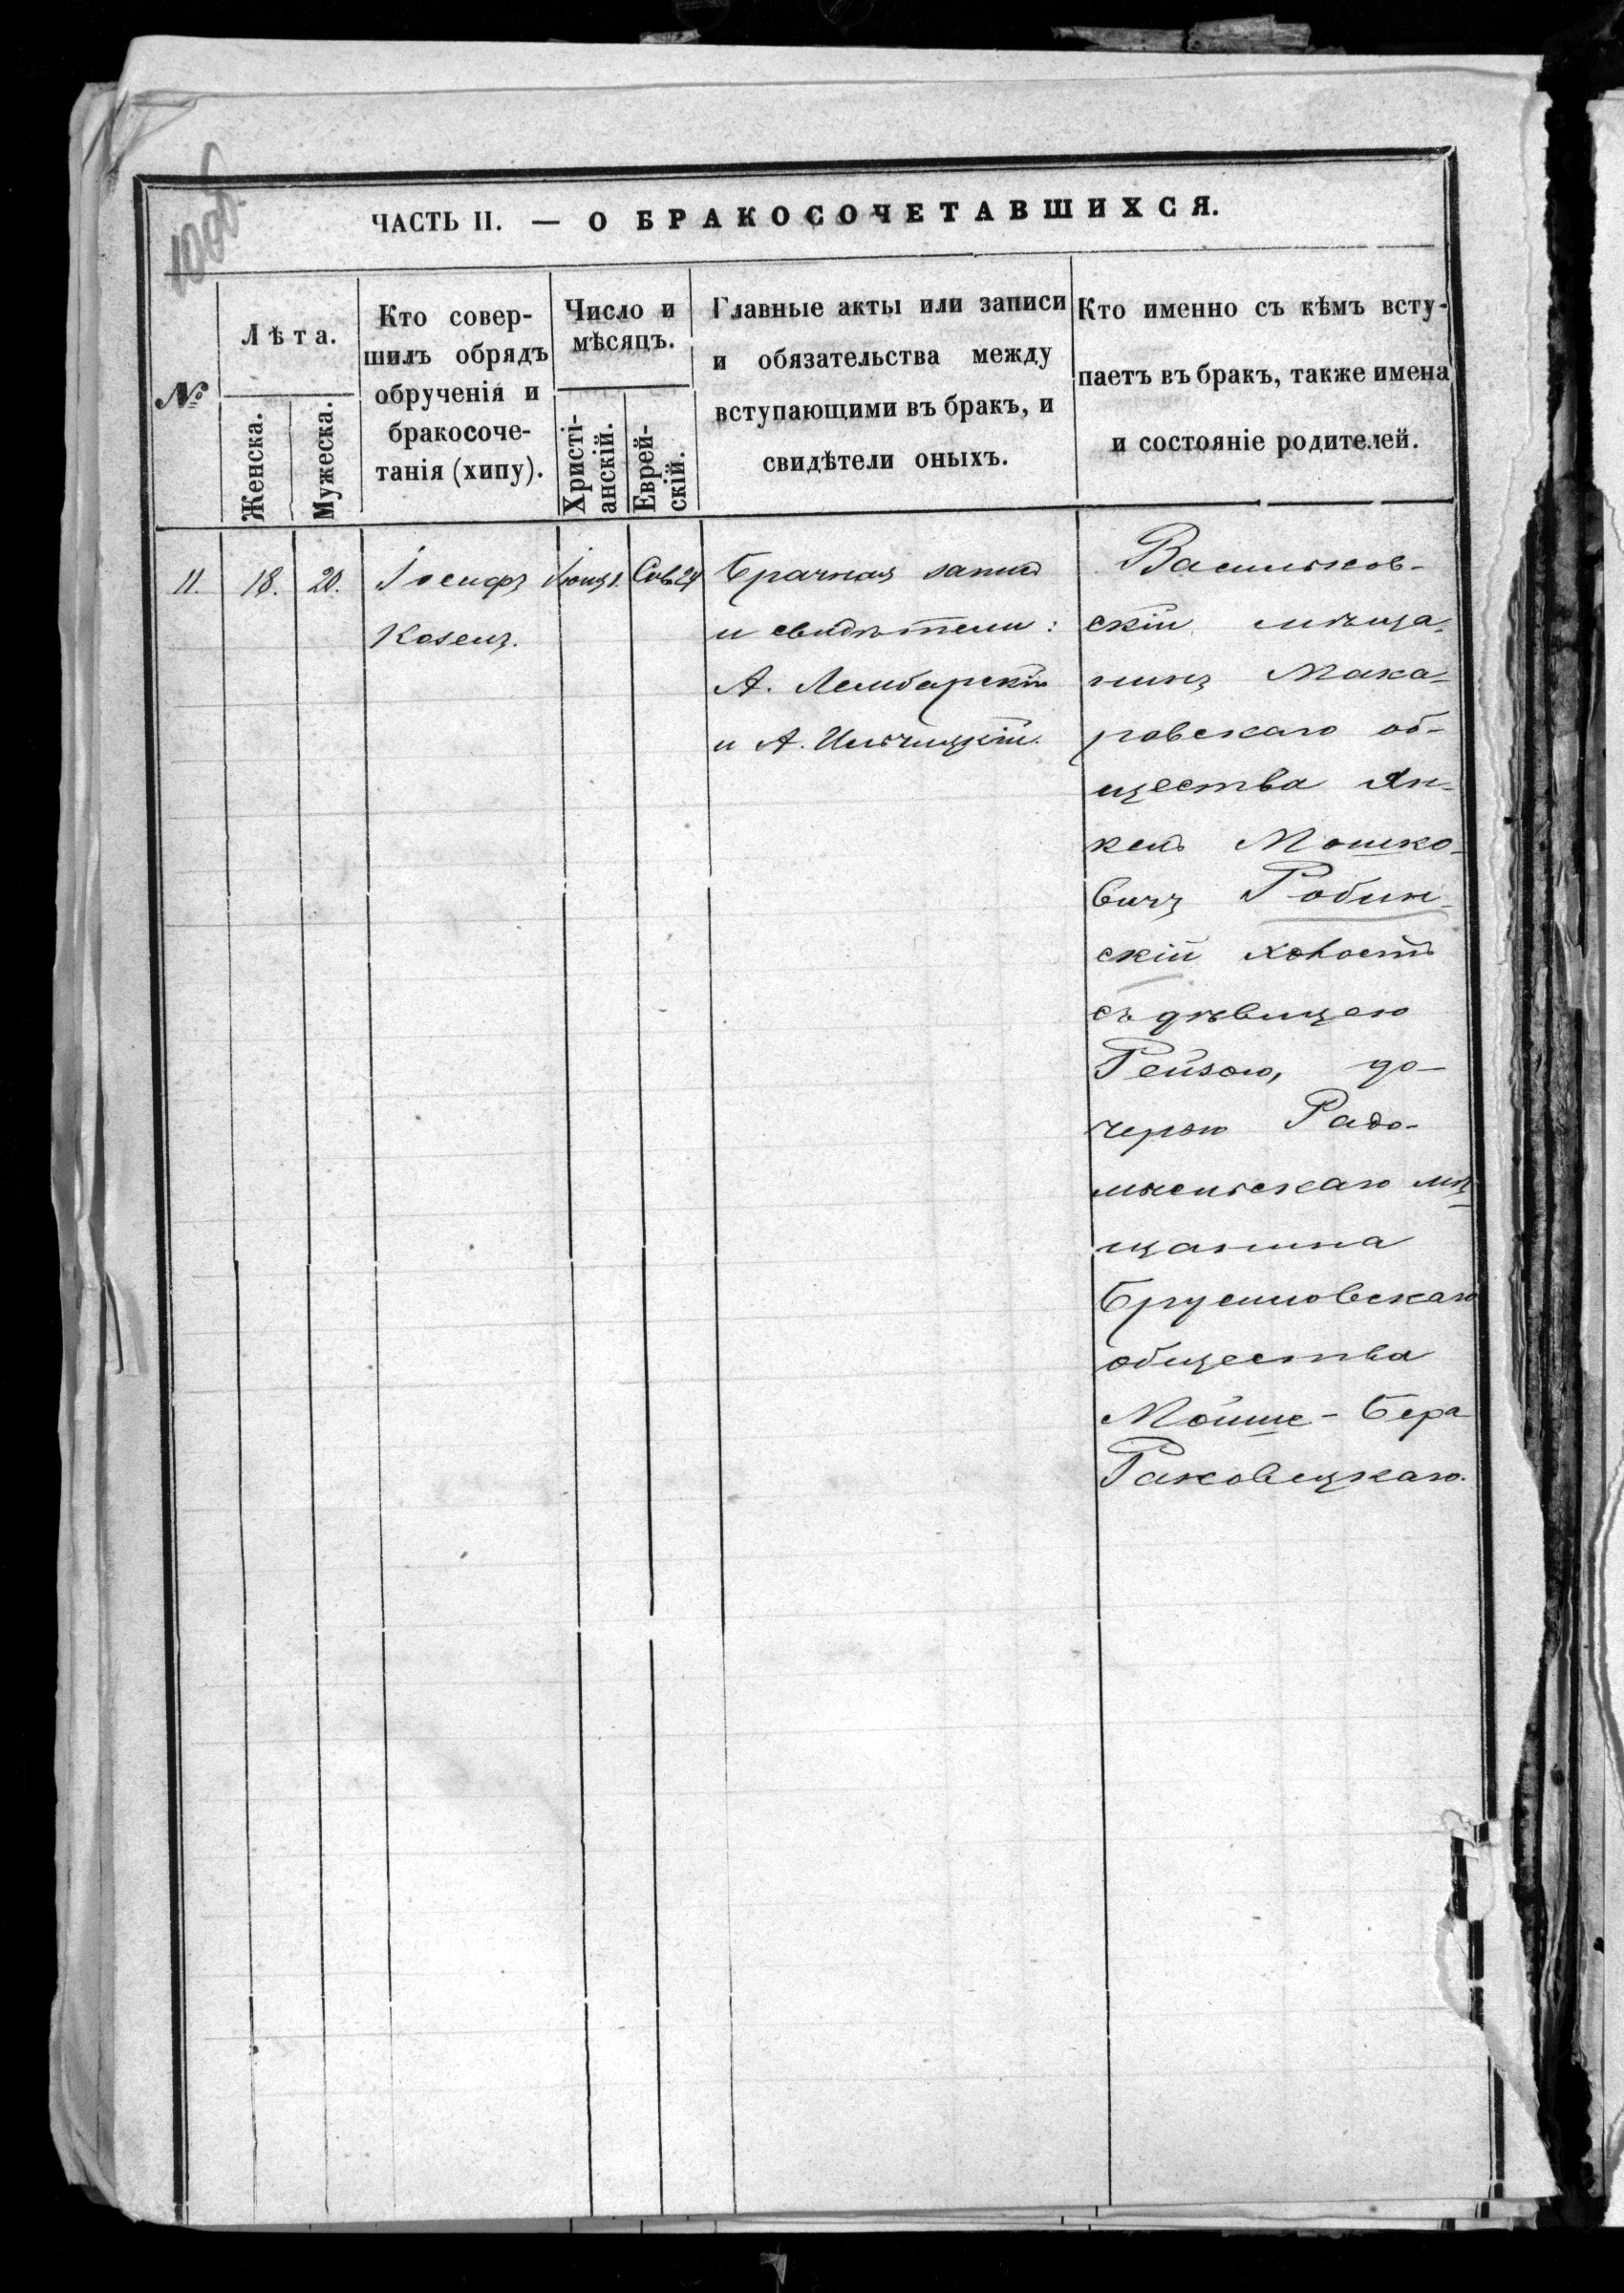 100об.
ЧАСТЬ II. — О БРАКОСОЧЕТАВШИХСЯ.
№
Лѣта.
Женска.
Мужеска.
Кто совер-
шилъ обрядъ
обрученія и
бракосоче-
танія (хипу).
Число и
мѣсяцъ.
Христі-
анскій.
Еврей-
скій.
Главные акты или записи
и обязательства между
вступающими въ бракъ, и
свидѣтели оныхъ.
Кто именно съ кѣмъ всту-
паетъ въ бракъ, также имена
и состояніе родителей.
11.
18.
20.
Іосифъ
Козенъ.
1.
24
Брачная запись
и свидѣтели:
А. Лембарскій
и А.
Васильков-
скій мѣща-
нинъ Мака-
ровскаго об-
щества Ян-
кель Мошко-
вичъ Робин-
скій холостъ
съ дѣвицею
Рейзою, до-
черью Радо-
мысльскаго мѣ-
щанина
Брусиловскаго
общества
Мойше-Бера
Раковецкаго.